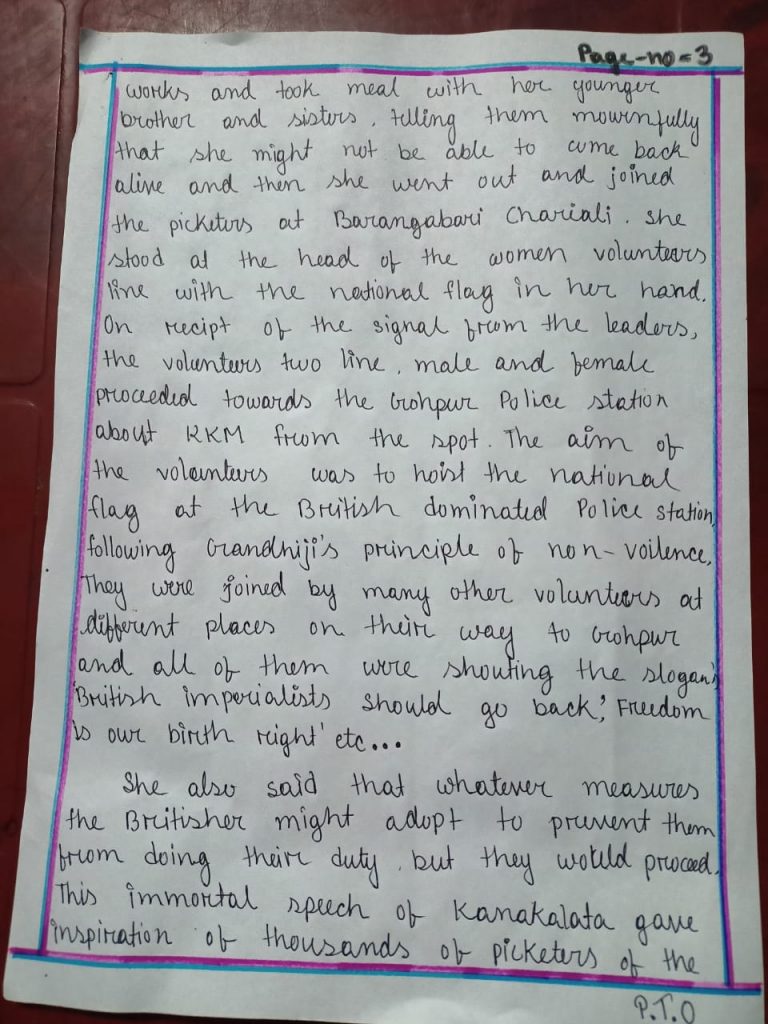 Page-no=3
works and took meal with her younger
brother and sisters, telling them mournfully
that she might not be able to come back
alive and then she went out and joined
the picketers at Barangabari Chariali. she
stood at the head of the women volunteers
line with the national flag in her hand.
On recipt of the signal from the leaders,
the volunteers two line, male and female
proceeded towards the Gohpur Police station
about 8KM from the spot. The aim of
the volunteers was to hoist the national
flag at the British dominated Police station,
following Grandhiji's principle of non-voilence.
They were joined by many other volunteers at
different places on their way to Gohpur
and all of them were shouting the slogan's
'British imperialists should go back,' Freedom
is our birth right' etc...
She also said that whatever measures
the Britisher might adopt to prevent them
from doing their duty, but they would proceed.
This immortal speech of Kanakalata gave
inspiration of thousands of picketers of the
P.T.O